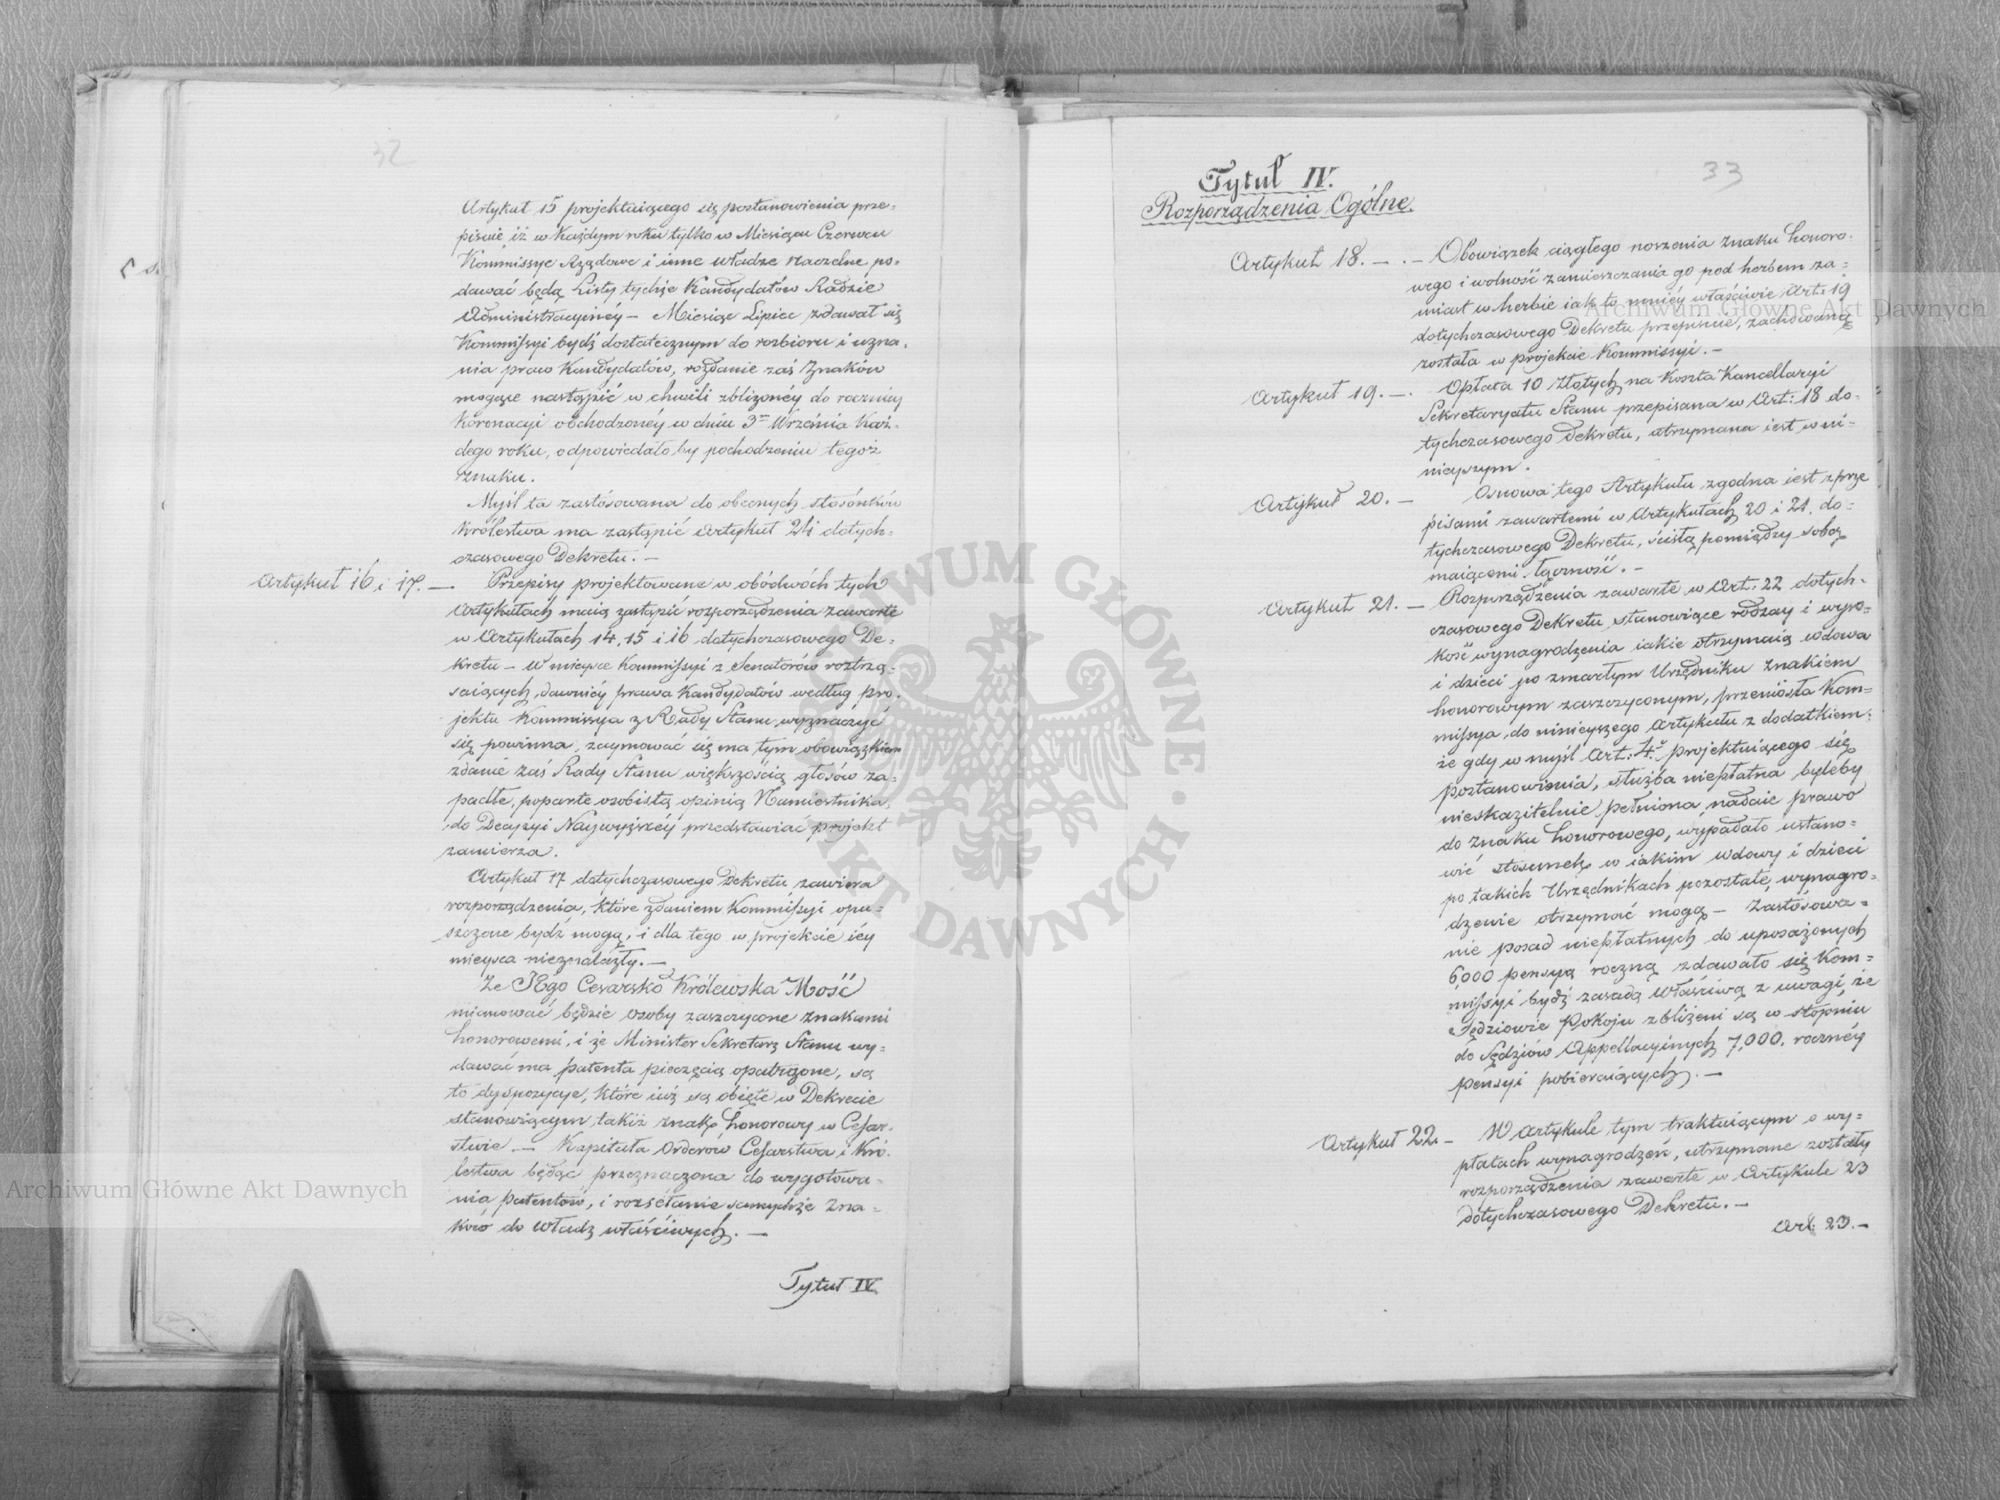 32
Artykuł 15 projektuiącego się postanowienia prze-
pisuie, iż w każdym roku tylko w Miesiącu Czerwcu
Kommissye Rządowe i inne władze naczelne po-
dawać będą Listy tychże Kandydatów Radzie
Administracyinéy – Miesiąc Lipiec zdawał się
Kommissyi bydź dostatecznym do rozbioru i uzna-
nia praw Kandydatów, rozdanie zaś Znaków
mogące nastąpić w chwili zbliżonéy do rocznicy
Koronacyi obchodzonéy w dniu 3m Września każ-
dego roku, odpowiedało by pochodzeniu tegoż
znaku.
Myśl ta zastósowana do obecnych stosónków
Królestwa ma zastąpić Artykuł 24 dotych-
czasowego Dekretu. –
Artykuł 16 i 17. – Przepisy projektowane w obódwóch tych
Artykułach maią zastąpić rozporządzenia zawarte
w Artykułach 14, 15 i 16 dotychczasowego De-
kretu – W mieysce Kommissyi z Senatorów roztrzą-
saiących dawniéy prawa Kandydatów według pro-
jektu Kommissya z Rady Stanu wyznaczyć
się powinna, zaymować się ma tym obowiązkiem
zdanie zaś Rady Stanu większością głosów za-
padłe, poparte osobistą opinią Namiestnika,
do Decyzyi Naywyższéy przedstawiać projekt
zamierza.
Artykuł 17 dotychczasowego Dekretu zawiera
rozporządzenia, które zdaniem Kommissyi opu-
szczone bydź mogą, i dla tego w projekcie iéy
mieysca nieznalazły. –
Że JEgo Cesarsko Królewska Mość
mianować będzie osoby zaszczycone znakami
honorowemi, i że Minister Sekretarz Stanu wy-
dawać ma patenta pieczęcią opatrzone, są
to dyspozycye, które iuż są obięte w Dekrecie
stanowiącym takiż znak honorowy w Cesar-
stwie. – Kapituła Orderów Cesarstwa i Kró-
lestwa będąc przeznaczona do wygotowa-
nia patentów, i rozsełanie samychże Zna-
ków do Władz właściwych. –
Tytuł IV
33
Tytuł IV.
Rozporządzenia Ogólne.
Artykuł 18. – . – Obowiązek ciągłego noszenia znaku honoro-
wego i wolność zamieszczania go pod herbem za-
miast w herbie iak to mniéy właściwie Art: 19
dotychczasowego Dekretu przepisuie, zachowaną
została w projekcie Kommissyi. –
Artykuł 19. – . Opłata 10 złotych na Koszta Kancellaryi
Sekretaryatu Stanu przepisana w Art: 18 do-
tychczasowego Dekretu, utrzymana iest w ni-
nieyszym.
Artykuł 20. – Osnowa tego Artykułu zgodna iest z prze
pisami zawartemi w Artykułach 20 i 21. do-
tychczasowego Dekretu, ścisłą pomiędzy sobą
maiącemi łączność. –
Artykuł 21. – Rozporządzenia zawarte w Art: 22 dotych-
czasowego Dekretu, stanowiące rodzay i wyso-
kość wynagrodzenia iakie otrzymaią wdowa
i dzieci po zmarłym Urzędniku znakiem
honorowym zaszczyconym, przeniosła Kom-
missya do ninieyszego Artykułu z dodatkiem:
że gdy w myśl Art: 4º projektuiącego się
postanowienia, służba niepłatna byleby
nieskazitelnie pełniona, nadaie prawo
do znaku honorowego, wypadało ustano-
wić stosunek w iakim wdowy i dzieci
po takich Urzędnikach pozostałe, wynagro-
dzenie otrzymać mogą – Zastósowa-
nie posad niepłatnych do uposażonych
6,000 pensyą roczną zdawało się Kom-
missyi bydź zasadą właściwą z uwagi, że
Sędziowie Pokoju zbliżeni są w stopniu
do Sędziów Appellacyinych 7,000. rocznéy
pensyi pobieraiących. –
Artykuł 22. – W Artykule tym traktuiącym o wy-
płatach wynagrodzeń, utrzymane zostały
rozporządzenia zawarte w Artykule 23
dotychczasowego Dekretu. –
Art: 23. –
Archiwum Główne Akt Dawnych
Archiwum Główne Akt Dawnych
ARCHIWUM GŁÓWNE · AKT DAWNYCH ·